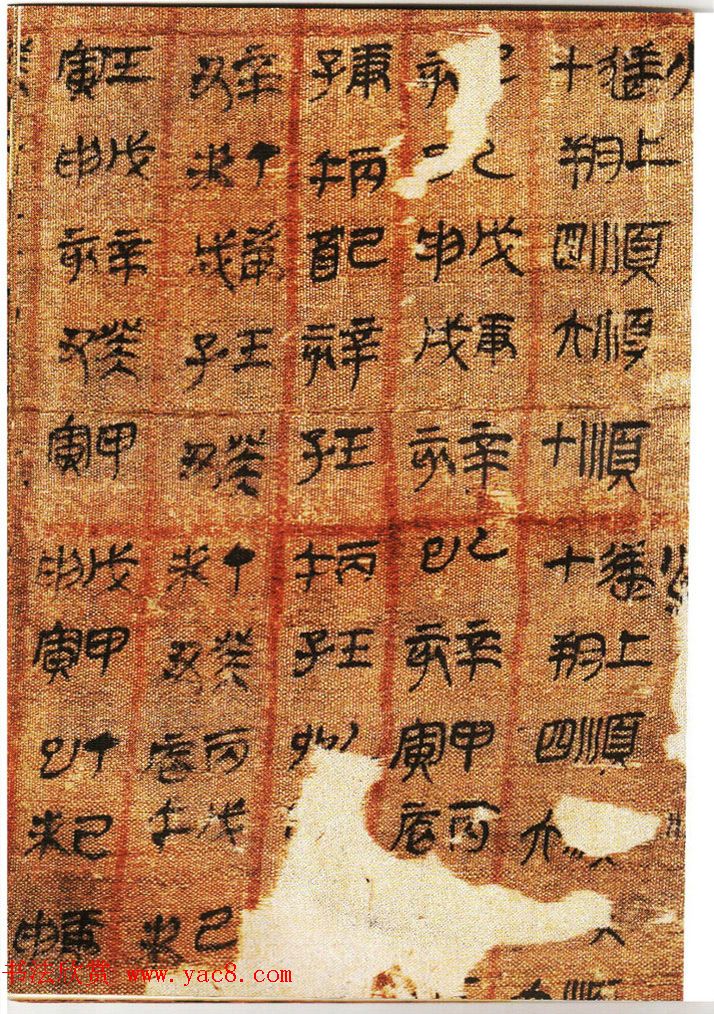 十上朔順四順六順十十上朔順四六
亥戊申庚戌辛亥乙巳辛亥甲寅丙辰
庚子丙午己酉辛亥壬子丙午壬子
辛丑丁未庚戌壬子癸丑丁未癸丑丙辰戊午己未
壬寅戊申辛亥癸丑甲寅戊申甲寅丁巳己未庚申
书法欣赏 www.yac8.com